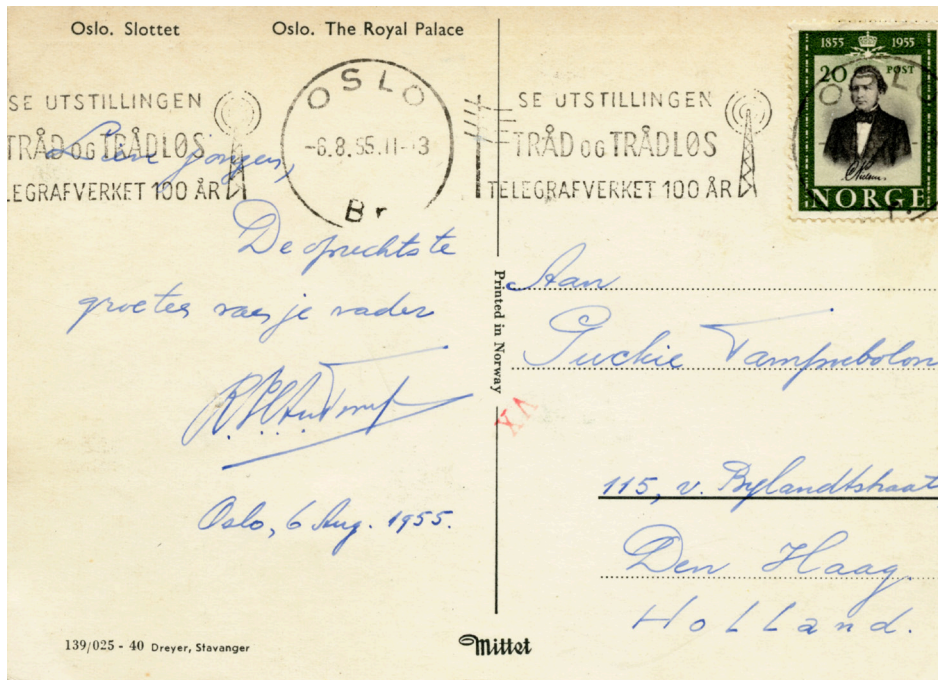 Oslo. Slottet
Oslo. The Royal Palace
1855 1955
20 POST
NORGE
SE UTSTILLINGEN
TRÅD OG TRÅDLØS
TELEGRAFVERKET 100 ÅR
OSLO
-6.8.55.11-13
Br
SE UTSTILLINGEN
TRÅD OG TRÅDLØS
TELEGRAFVERKET 100 ÅR
OSLO
Lieve jongen,
De oprechtste
groeten van je vader
Oslo, 6 Aug. 1955.
Printed in Norway
XV
Aan
Puckie Tampubolon
115, v. Bylandtstraat
Den Haag.
Holland.
139/025 - 40 Dreyer, Stavanger
Mittet